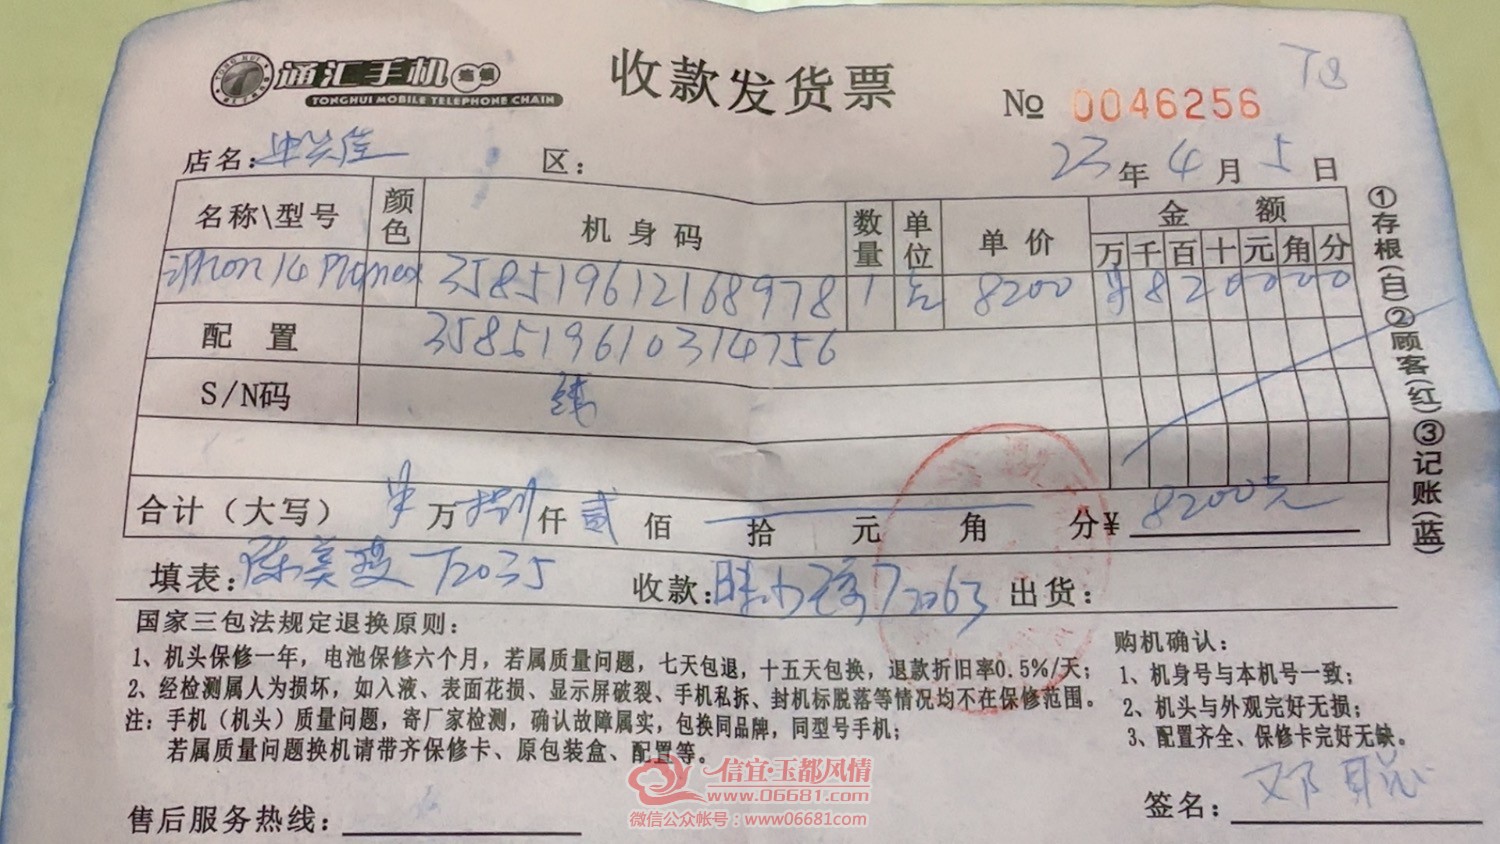 通汇手机连锁
TONGHUI MOBILE TELEPHONE CHAIN
收款发货票
№ 0046256
店名: 区:
23年4月5日
名称\型号 颜色 机身码 数量 单位 单价 金额
万 千 百 十 元 角 分
14 Promax 358519612168978 1 8200 8 2 0 0 0 0
配置 358519610314756
S/N码
合计（大写） 万 捌 仟 贰 佰 拾 元 角 分¥ 8200元
①存根(白)②顾客(红)③记账(蓝)
填表: 陈美 72035 收款: 72063 出货:
国家三包法规定退换原则:
1、机头保修一年，电池保修六个月，若属质量问题，七天包退，十五天包换，退款折旧率0.5%/天；
2、经检测属人为损坏，如入液、表面花损、显示屏破裂、手机私拆、封机标脱落等情况均不在保修范围。
注: 手机（机头）质量问题，寄厂家检测，确认故障属实，包换同品牌，同型号手机；
若属质量问题换机请带齐保修卡、原包装盒、配置等。
购机确认:
1、机身号与本机号一致；
2、机头与外观完好无损；
3、配置齐全、保修卡完好无缺。
售后服务热线:
签名: 邓聪
信宜·玉都风情
www.06681.com
微信公众帐号：www06681com